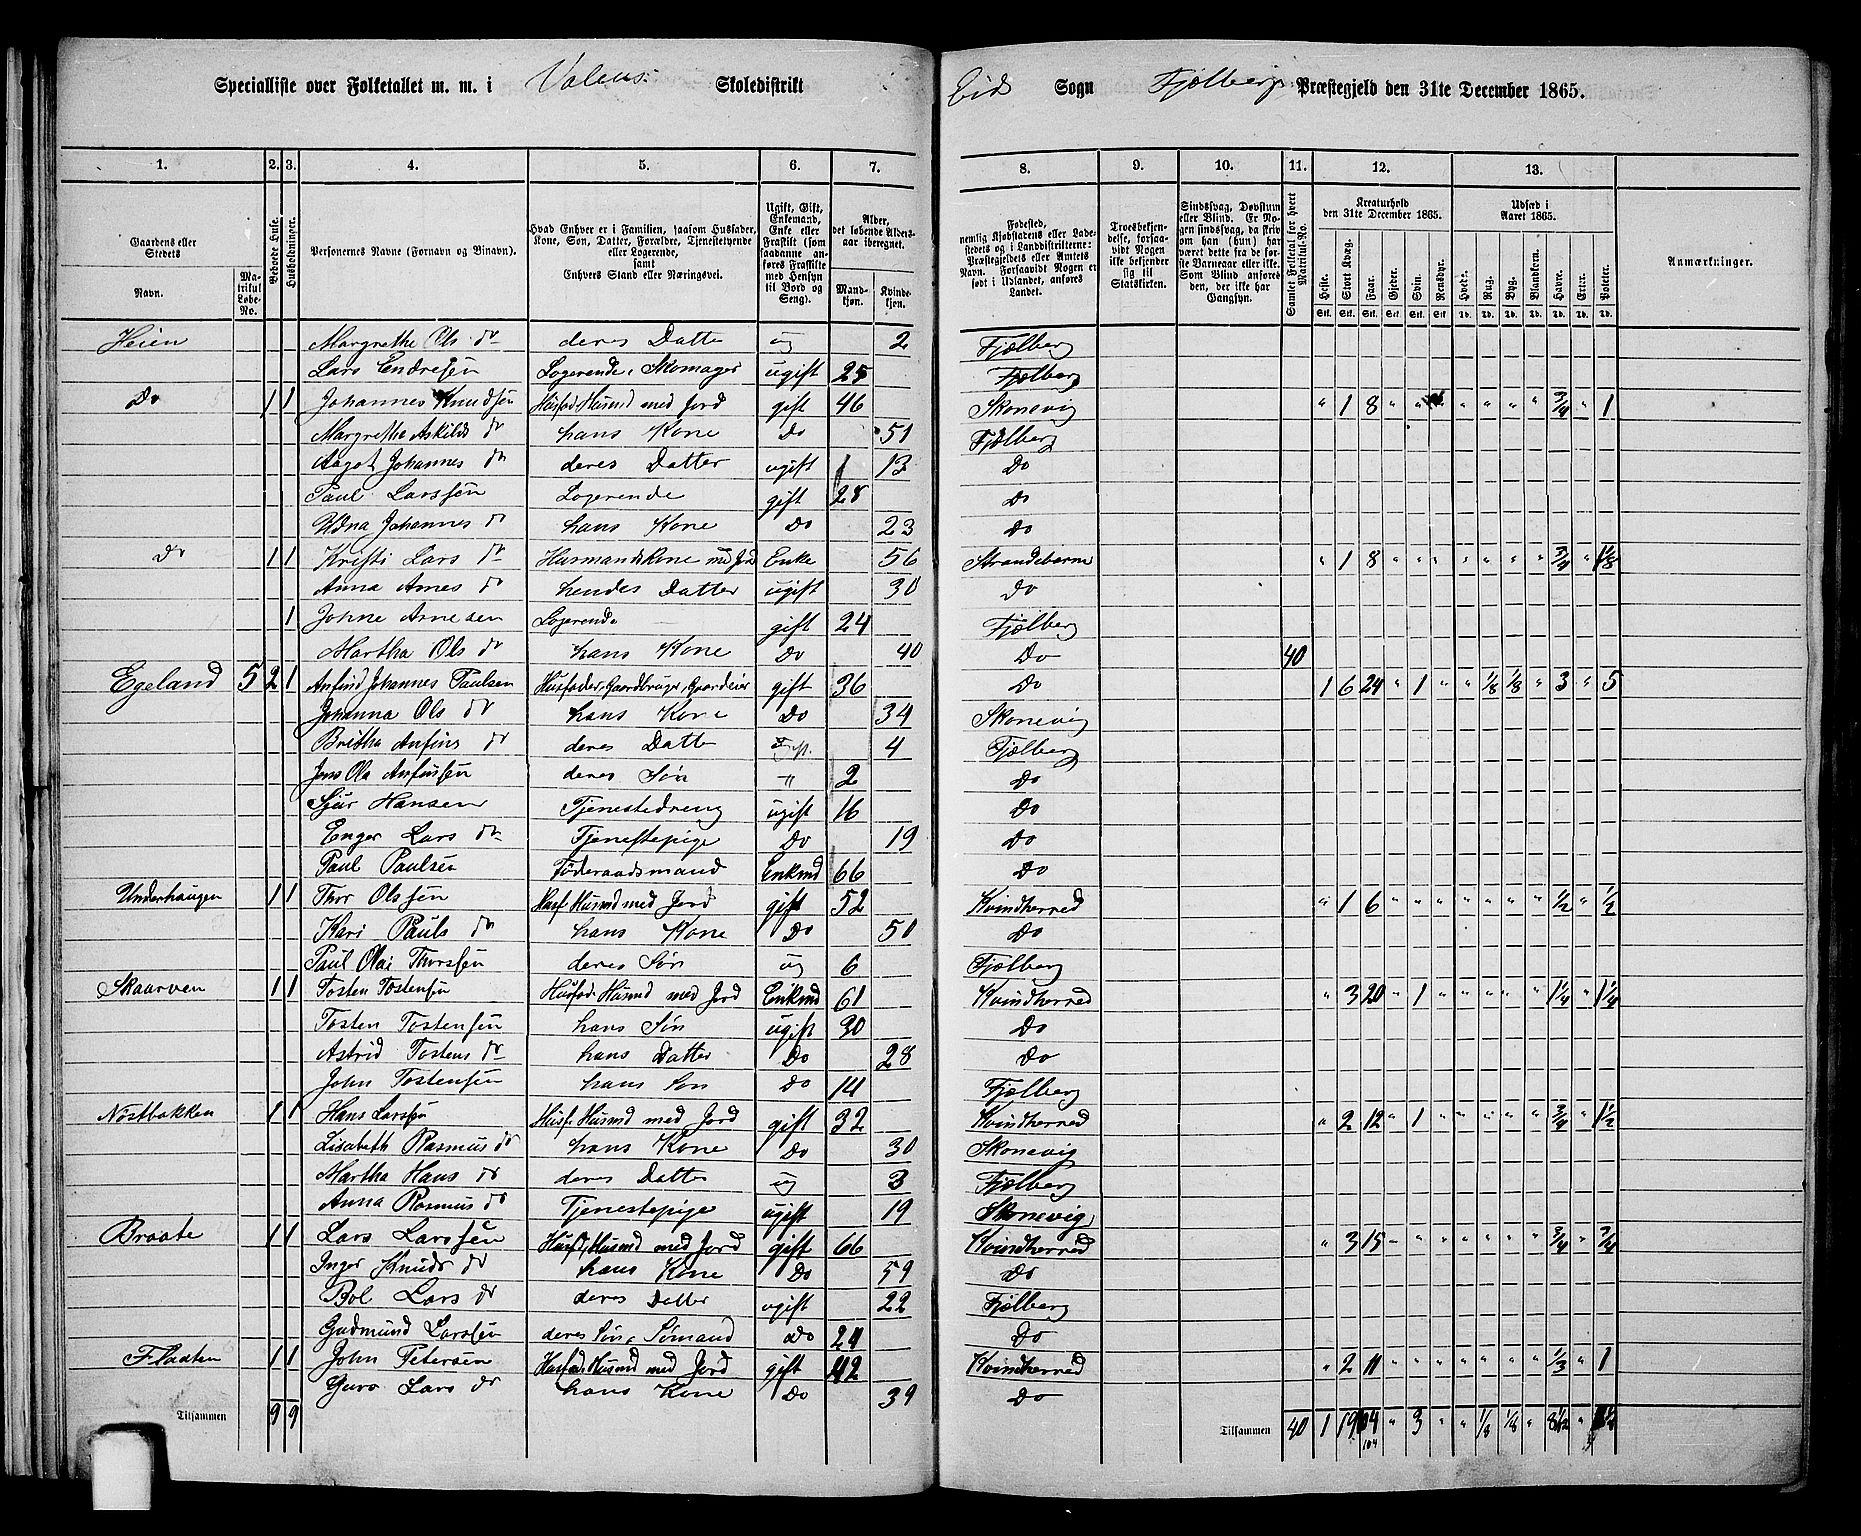 Specialliste over Folketallet m. m. i Valens Skoledistrikt Eid Sogn Fjelberg Præstegjeld den 31te December 1865.
1. 2. 3. 4. 5. 6. 7. 8. 9. 10. 11. 12. 13.
Gaardens eller Stedets Navn. Matrikul Løbe-No. Beboede Huse. Husholdninger. Personernes Navne (Fornavn og Binavn). Hvad Enhver er i Familien, saasom Husfader, Kone, Søn, Datter, Forældre, Tjenestetyende eller Logerende, samt Enhvers Stand eller Næringsvei. Ugift, Gift, Enkemand, Enke eller Fraskilt (som saadanne anføres Fraskilte med Hensyn til Bord og Seng). Alder, det løbende Aldersaar iberegnet. Mandkjøn. Kvindekjøn. Fødested, nemlig Kjøbstadens eller Ladestedets og i Landdistrikterne: Præstegjeldets eller Amtets Navn. Forsaavidt Nogen er født i Udlandet, anføres Landet. Troesbekjendelse, forsaavidt Nogen ikke bekjender sig til Statskirken. Sindssvag, Døvstum eller Blind. Er Nogen sindssvag, da skriv om han (hun) har været dette fra de første Barneaar eller ikke. Som Blind anføres den, der ikke har Gangsyn. Samlet Folketal for hvert Matrikul-No. Kreaturhold den 31te December 1865. Udsæd i Aaret 1865. Anmærkninger.
Heste. Stort Kvæg. Faar. Gjeder. Svin. Rensdyr. Hvede. Rug. Byg. Blandkorn. Havre. Erter. Poteter.
Stk. Stk. Stk. Stk. Stk. Stk. Td. Td. Td. Td. Td. Td. Td.
Heien Margrethe Ols dr deres Datte ug 2 Fjelberg
Lars Endresen Logerende, Skomager ugift 25 Fjelberg
Do 1 1 Johannes Knudsen Husfad. Husmd med Jord gift 46 Skonevig " 1 8 " " " " " " " 3/4 " 1
Margrethe Askilds dr hans Kone Do 51 Fjelberg
Aagot Johannes dr deres Datter ugift 13 Do
Paul Larssen Logerende gift 28 Do
Udna Johannes dr hans Kone Do 23 Do
Do 1 1 Kristi Lars dr Husmandskone med Jord Enke 56 Strandebarm " 1 8 " " " " " " " 3/4 " 1 1/8
Anna Arnes dr hendes Datter ugift 30 Do
1 Johne Arnesen Logerende gift 24 Fjelberg
Martha Ols dr hans Kone Do 40 Do 40
Egeland 5 2 1 Anfind Johannes Paulsen Husfader, Gaardbruger, Gaardeier gift 36 Do 1 6 24 " 1 " " 1/8 1/8 " 3 " 5
Johanna Ols dr hans Kone Do 34 Skonevig
Britha Anfins dr deres Datte 4 Fjelberg
Jens Ola Anfinsen deres Søn " 2 Do
Sjur Hansen Tjenestedreng ugift 16 Do
Enger Lars dr Tjenestepige Do 19 Do
Paul Paulsen Føderaadsmand Enkmd 66 Do
Underhaugen 1 1 Thor Olssen Husf. Husmd med Jord gift 52 Kvindherred " 1 6 " " " " " " " 1/2 " 1/2
Kari Pauls dr hans Kone Do 50 Do
Paul Olai Thorssen deres Søn ug 6 Fjelberg
Skaarven 1 1 Tosten Tostensen Husfad. Husmd med Jord Enkmd 61 Kvindherred " 3 20 " 1 " " " " " 1 1/4 " 1 1/4
Tosten Tostensen hans Søn ugift 30 Do
Astrid Tostens dr hans Datter Do 28 Do
John Tostensen hans Søn Do 14 Fjelberg
Nostbakken 1 1 Hans Larssen Husf. Husmd med Jord gift 32 Kvindherred " 2 12 " 1 " " " " " 3/4 " 1 1/2
Lisabeth Rasmus dr hans Kone Do 30 Skonevig
Martha Hans dr deres Datter ug 3 Fjelberg
Anna Rasmus dr Tjenestepige ugift 19 Skonevig
Braate 1 1 Lars Larssen Husfd, Husmd med Jord gift 66 Kvindherred " 3 15 " " " " " " " 3/4 " 3/4
Inger Knuds dr hans Kone Do 59 Do
Bol Lars dr deres Datter ugift 22 Fjelberg
Gudmund Larssen deres Søn, Sømand Do 24 Do
Flaaten 1 1 John Petersen Husfad. Husmd med Jord gift 42 Kvindherred " 2 11 " " " " " " " 1/3 " 1
Guro Lars dr hans Kone Do 39 Do
Tilsammen 9 9 Tilsammen 40 1 19 104 " 3 " " 1/8 1/8 " 8 1/12 "
104